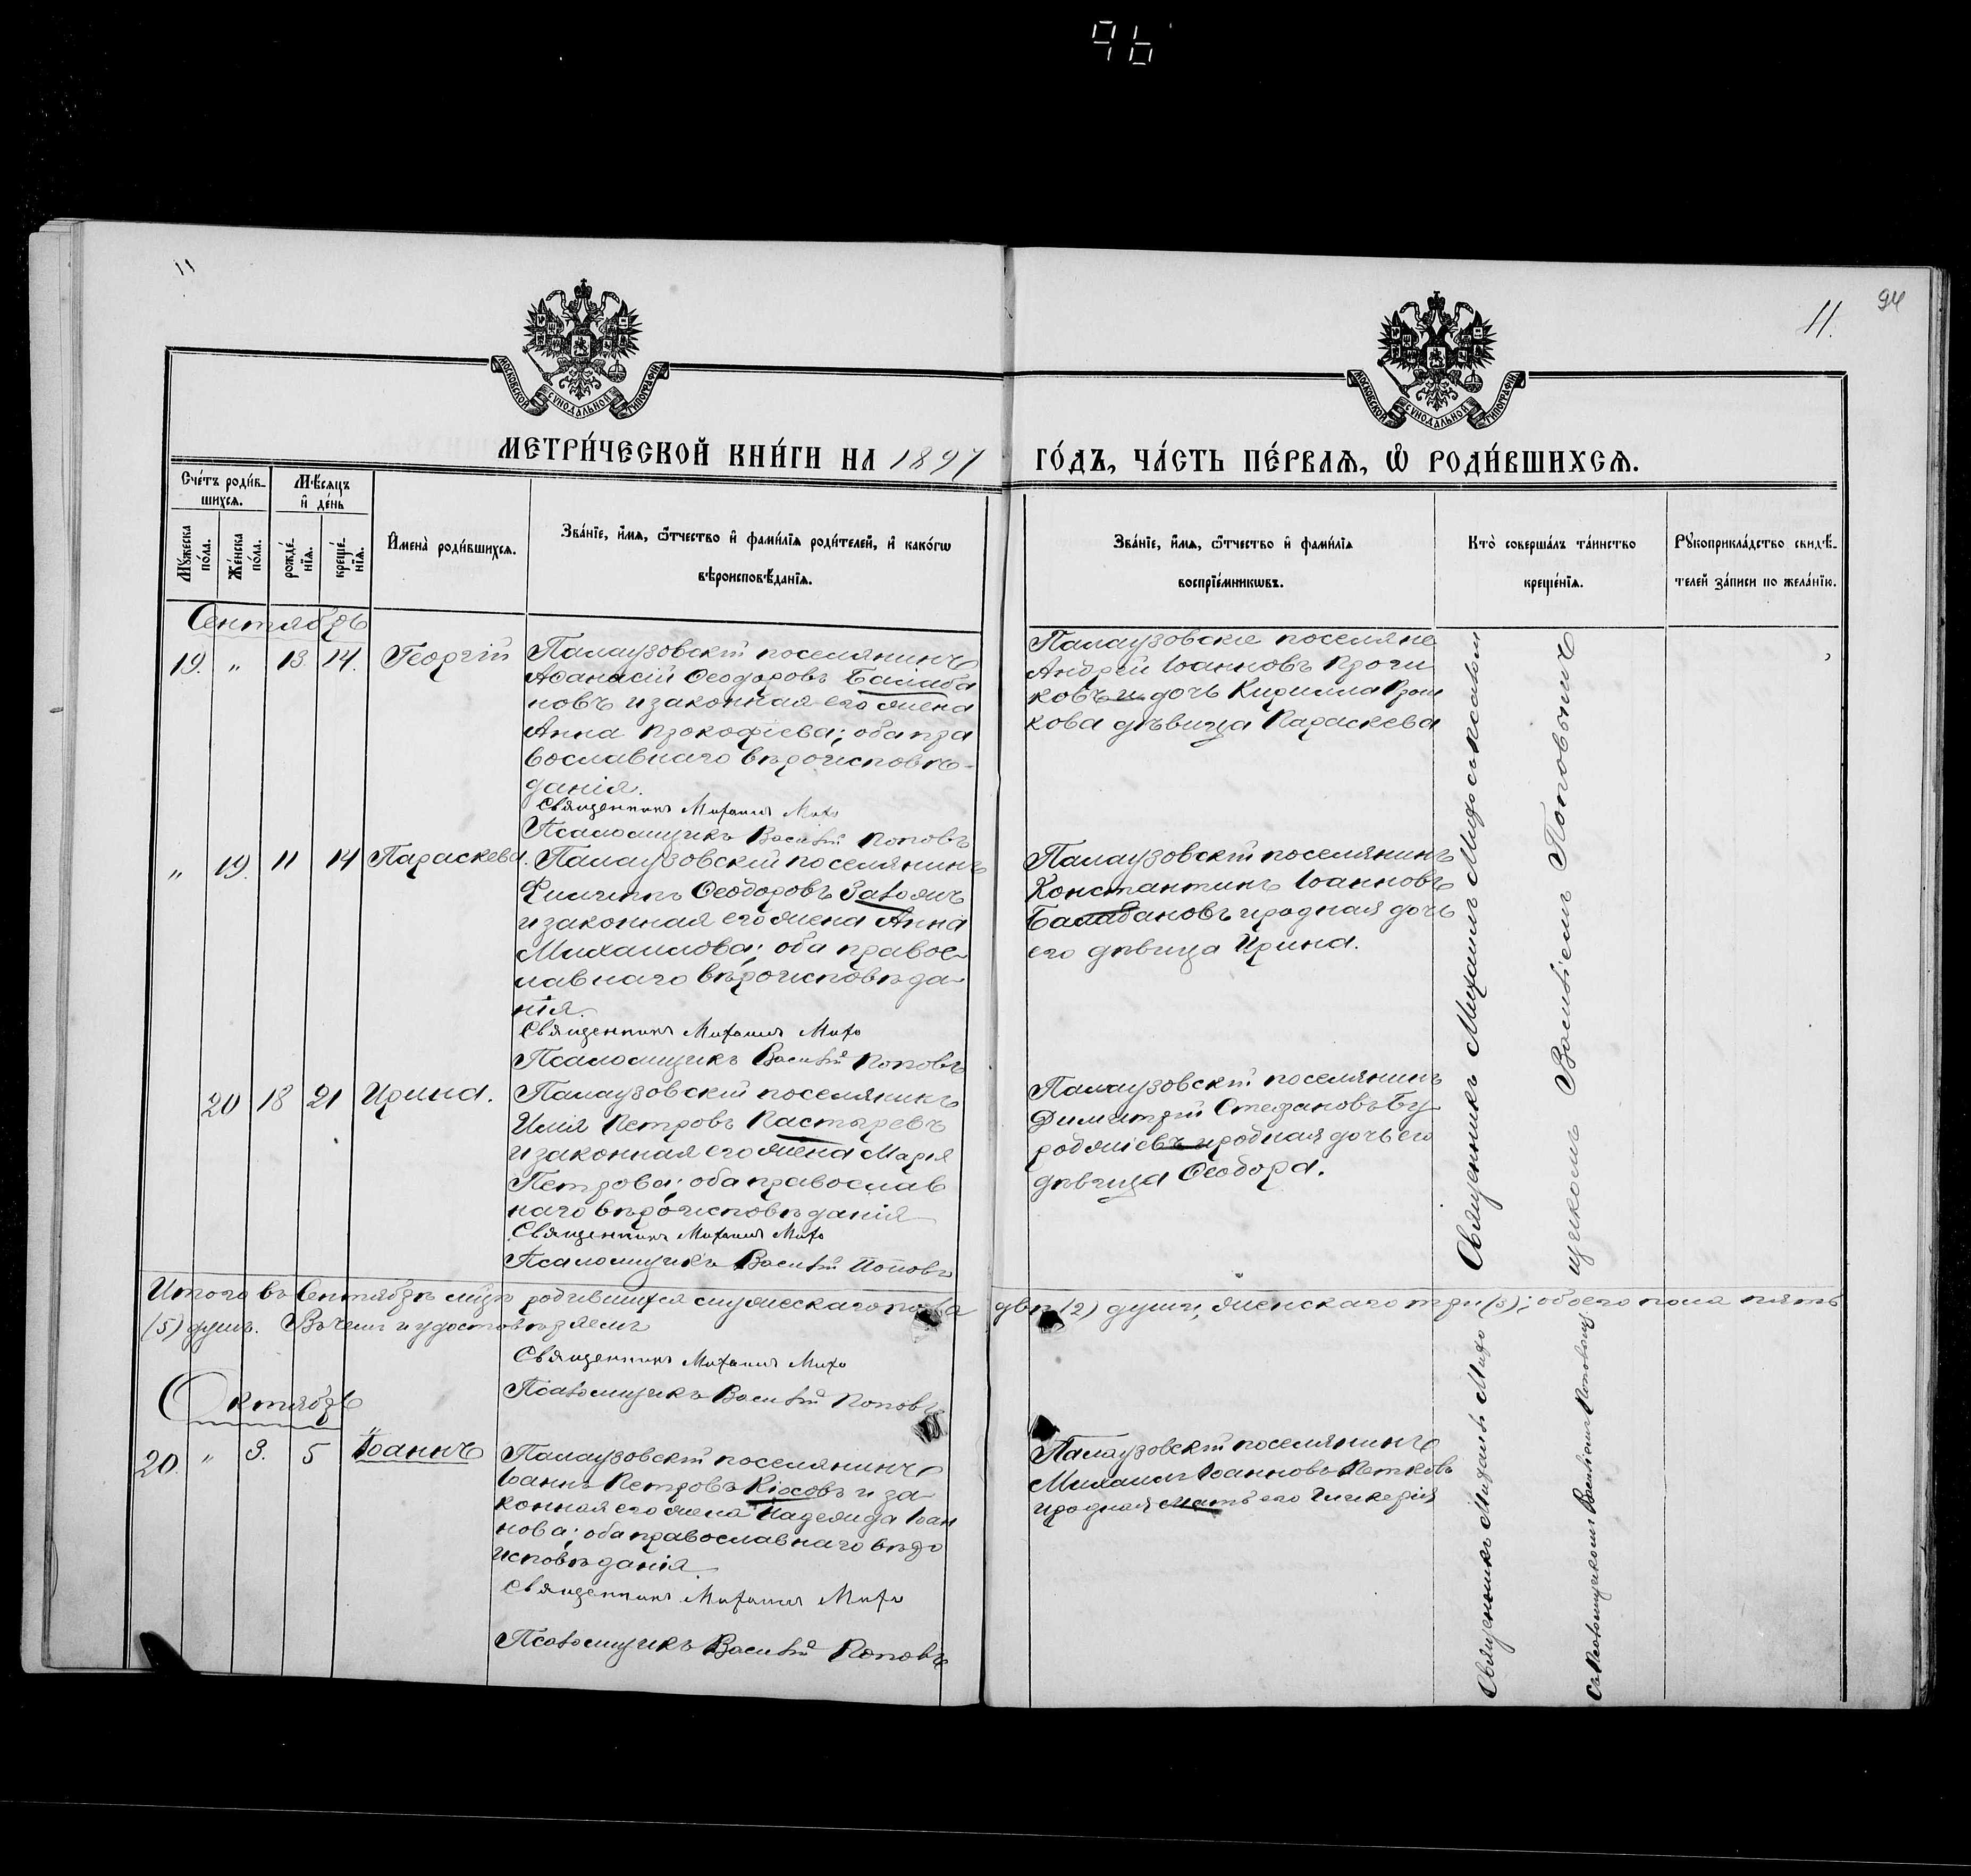 96
11
11.
94
МОСКОВСКОЙ СѴНОДАЛЬНОЙ ТИПОГРАФІИ
МОСКОВСКОЙ СѴНОДАЛЬНОЙ ТИПОГРАФІИ
МЕТРИ́ЧЕСКОЙ КНИ́ГИ НА 1897 ГО́ДЪ, ЧА́СТЬ ПЕ́РВАѦ, Ѽ РОДИ́ВШИХСѦ.
Сче́тъ роди́в-
шихсѧ.
Мѣ́сѧцъ
и҆ де́нь
Мꙋ́жеска по́ла.
Же́нска по́ла.
рожде́-
нїѧ.
креще́-
нїѧ.
И҆мена̀ роди́вшихсѧ.
Зва́нїе, и҆́мѧ, ѻ҆́тчество и҆ фами́лїѧ роди́телей, и҆ како́гѡ
вѣроисповѣ́данїѧ.
Зва́нїе, и҆́мѧ, ѻ҆́тчество и҆ фами́лїѧ
воспрїе́мникѡвъ.
Кто̀ соверша́лъ та́инство
креще́нїѧ.
Рꙋкоприкла́дство свидѣ́-
телей за́писи по жела́нїю.
Сентябрь
19. " 13. 14. Георгій
Палаузовскій поселянинъ
Аѳанасій Ѳеодоровъ Балаба
новъ и законная его жена
Анна Прокофіева; оба пра
вославнаго вѣроисповѣ-
данія.
Священникъ Михаилъ Михо
Псаломщикъ Василій Поповъ
Палаузовскіе поселяне
Андрей Іоанновъ
ковъ и дочь Кирилла
кова дѣвица Параскева
" 19. 11 14 Параскева.
Палаузовскій поселянинъ
Филиппъ Ѳеодоровъ
и законная его жена Анна
Михаилова; оба правос-
лавнаго вѣроисповѣда-
нія.
Священникъ Михаилъ Михо
Псаломщикъ Василій Поповъ
Палаузовскій поселянинъ
Константинъ Іоанновъ
Балабановъ и родная дочь
его дѣвица Ирина.
20 18 21 Ирина.
Палаузовскій поселянинъ
Илія Петровъ Пастыревъ
и законная его жена Марія
Петрова; оба православ
наго вѣроисповѣданія
Священникъ Михаилъ Михо
Псаломщикъ Василій Поповъ
Палаузовскій поселянинъ
Димитрій Стефановъ Бу
роджіевъ и родная дочь его
дѣвица Ѳеодора.
Священникъ Михаилъ Михо съ псалом
щикомъ Василіемъ Поповымъ
Итого въ Сентябрѣ мцѣ родившихся мужескаго пола двѣ (2) души, женскаго три (3); обоего пола пять
(5) душъ. Въ чемъ и удостовѣряемъ
Священникъ Михаилъ Михо
Псаломщикъ Василій Поповъ
Октябрь
20. " 3. 5 Іоаннъ
Палаузовскій поселянинъ
Іоаннъ Петровъ Кіосовъ и за
конная его жена Надежда Іоан
нова; оба православнаго вѣро
исповѣданія.
Священникъ Михаилъ Михо
Псаломщикъ Василій Поповъ
Палаузовскій поселянинъ
Михаилъ Іоанновъ Петковъ
и родная мать его Гликерія
Священникъ Михаилъ Михо
Съ Псаломщикомъ Василіемъ Поповымъ